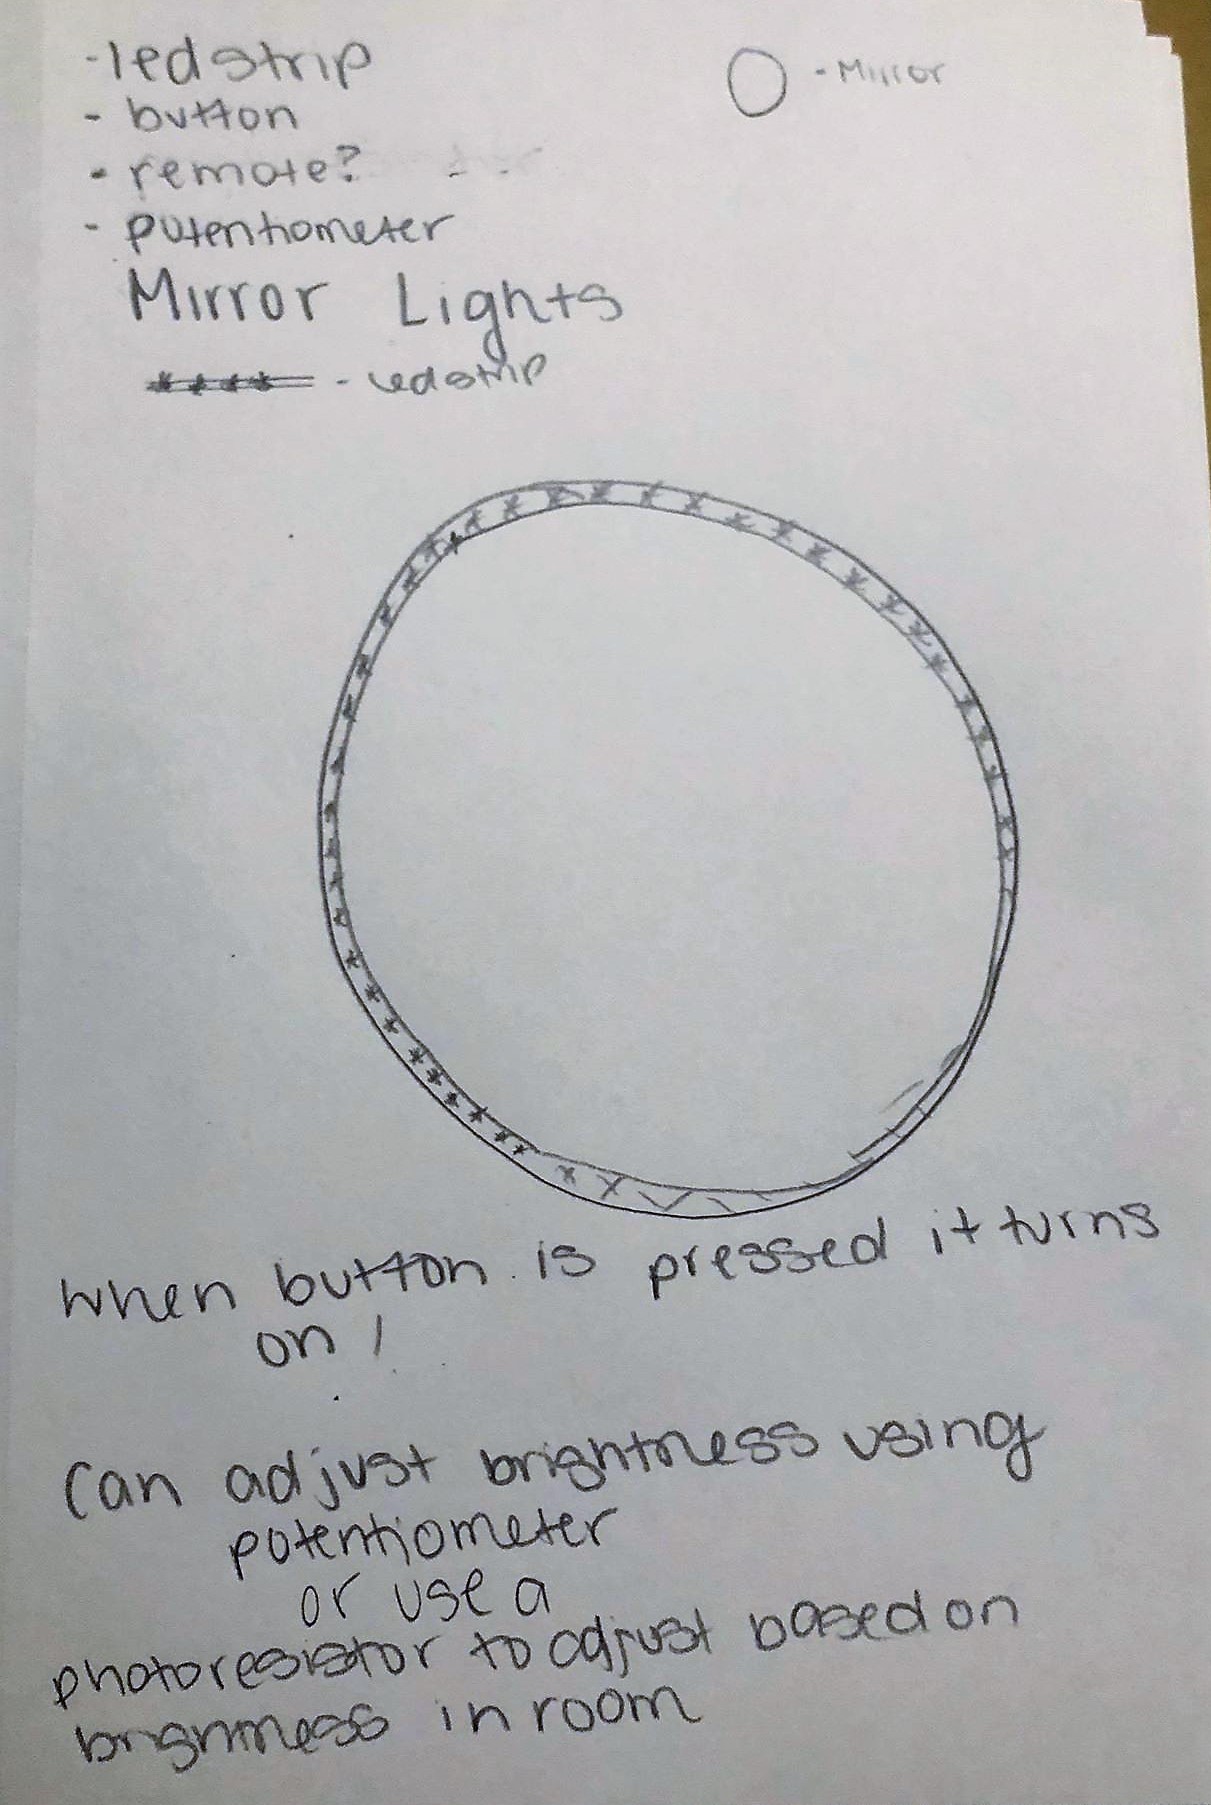 -led strip
- button
- remote?
- potentiometer
O - Mirror
Mirror Lights
- led strip
When button is pressed it turns
on!
Can adjust brightness using
potentiometer
or use a
photoresistor to adjust based on
brightness in room